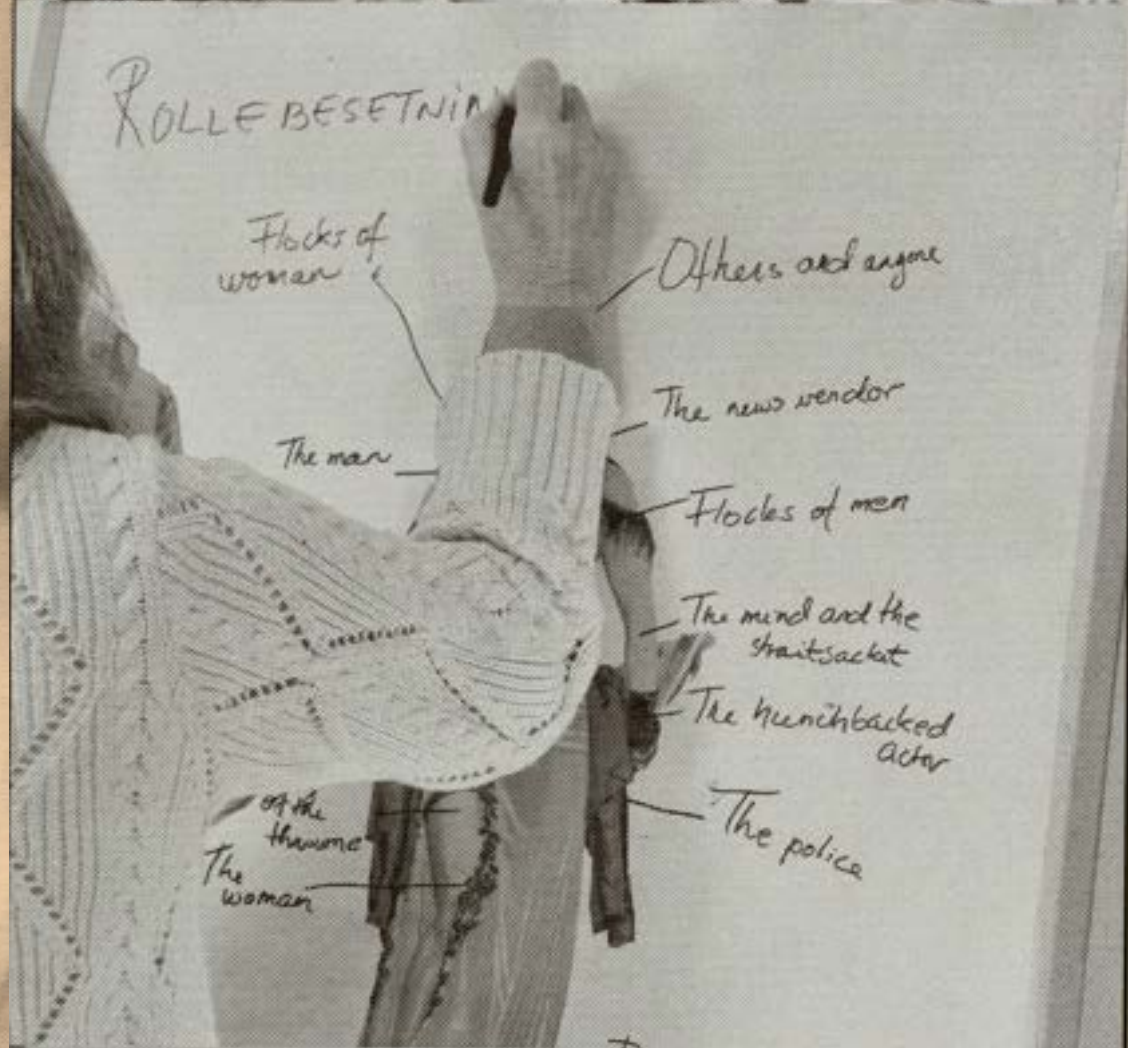 ROLLEBESETNIN
Flocks of
woman
Others and anyone
The news vendor
The man
Flocks of men
The mind and the
straitsacket
The hunchbacked
actor
of the
The police
The
woman